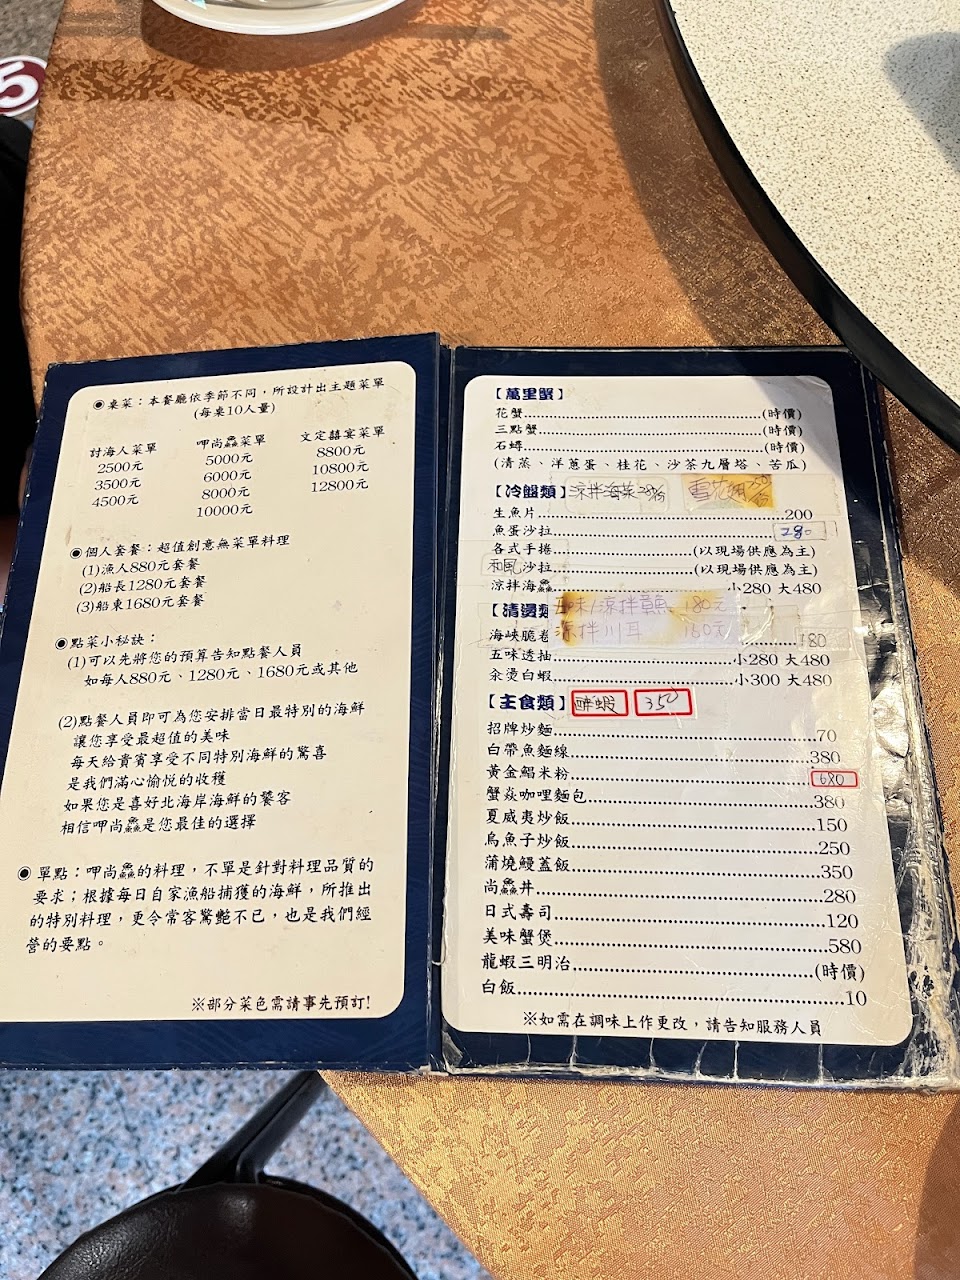 5
◉桌菜：本餐廳依季節不同，所設計出主題菜單
(每桌10人量)
討海人菜單
2500元
3500元
4500元
呷尚鱻菜單
5000元
6000元
8000元
10000元
文定囍宴菜單
8800元
10800元
12800元
◉個人套餐：超值創意無菜單料理
(1)漁人880元套餐
(2)船長1280元套餐
(3)船東1680元套餐
◉點菜小秘訣：
(1)可以先將您的預算告知點餐人員
如每人880元、1280元、1680元或其他
(2)點餐人員即可為您安排當日最特別的海鮮
讓您享受最超值的美味
每天給貴賓享受不同特別海鮮的驚喜
是我們滿心愉悅的收穫
如果您是喜好北海岸海鮮的饕客
相信呷尚鱻是您最佳的選擇
◉單點：呷尚鱻的料理，不單是針對料理品質的
要求；根據每日自家漁船捕獲的海鮮，所推出
的特別料理，更令常客驚艷不已，也是我們經
營的要點。
※部分菜色需請事先預訂!
【萬里蟹】
花蟹(時價)
三點蟹(時價)
石蟳(時價)
(清蒸、洋蔥蛋、桂花、沙茶九層塔、苦瓜)
【冷盤類】涼拌海菜 雪花
生魚片200
魚蛋沙拉280
各式手捲(以現場供應為主)
和風沙拉(以現場供應為主)
涼拌海鱻小280 大480
【清燙類 五味/涼拌 180元
涼拌川耳 160元
海峽脆卷180
五味透抽小280 大480
汆燙白蝦小300 大480
【主食類】醉蝦 350
招牌炒麵70
白帶魚麵線380
黃金鯧米粉680
蟹焱咖哩麵包380
夏威夷炒飯150
烏魚子炒飯250
蒲燒鰻蓋飯350
尚鱻丼280
日式壽司120
美味蟹煲580
龍蝦三明治(時價)
白飯10
※如需在調味上作更改，請告知服務人員